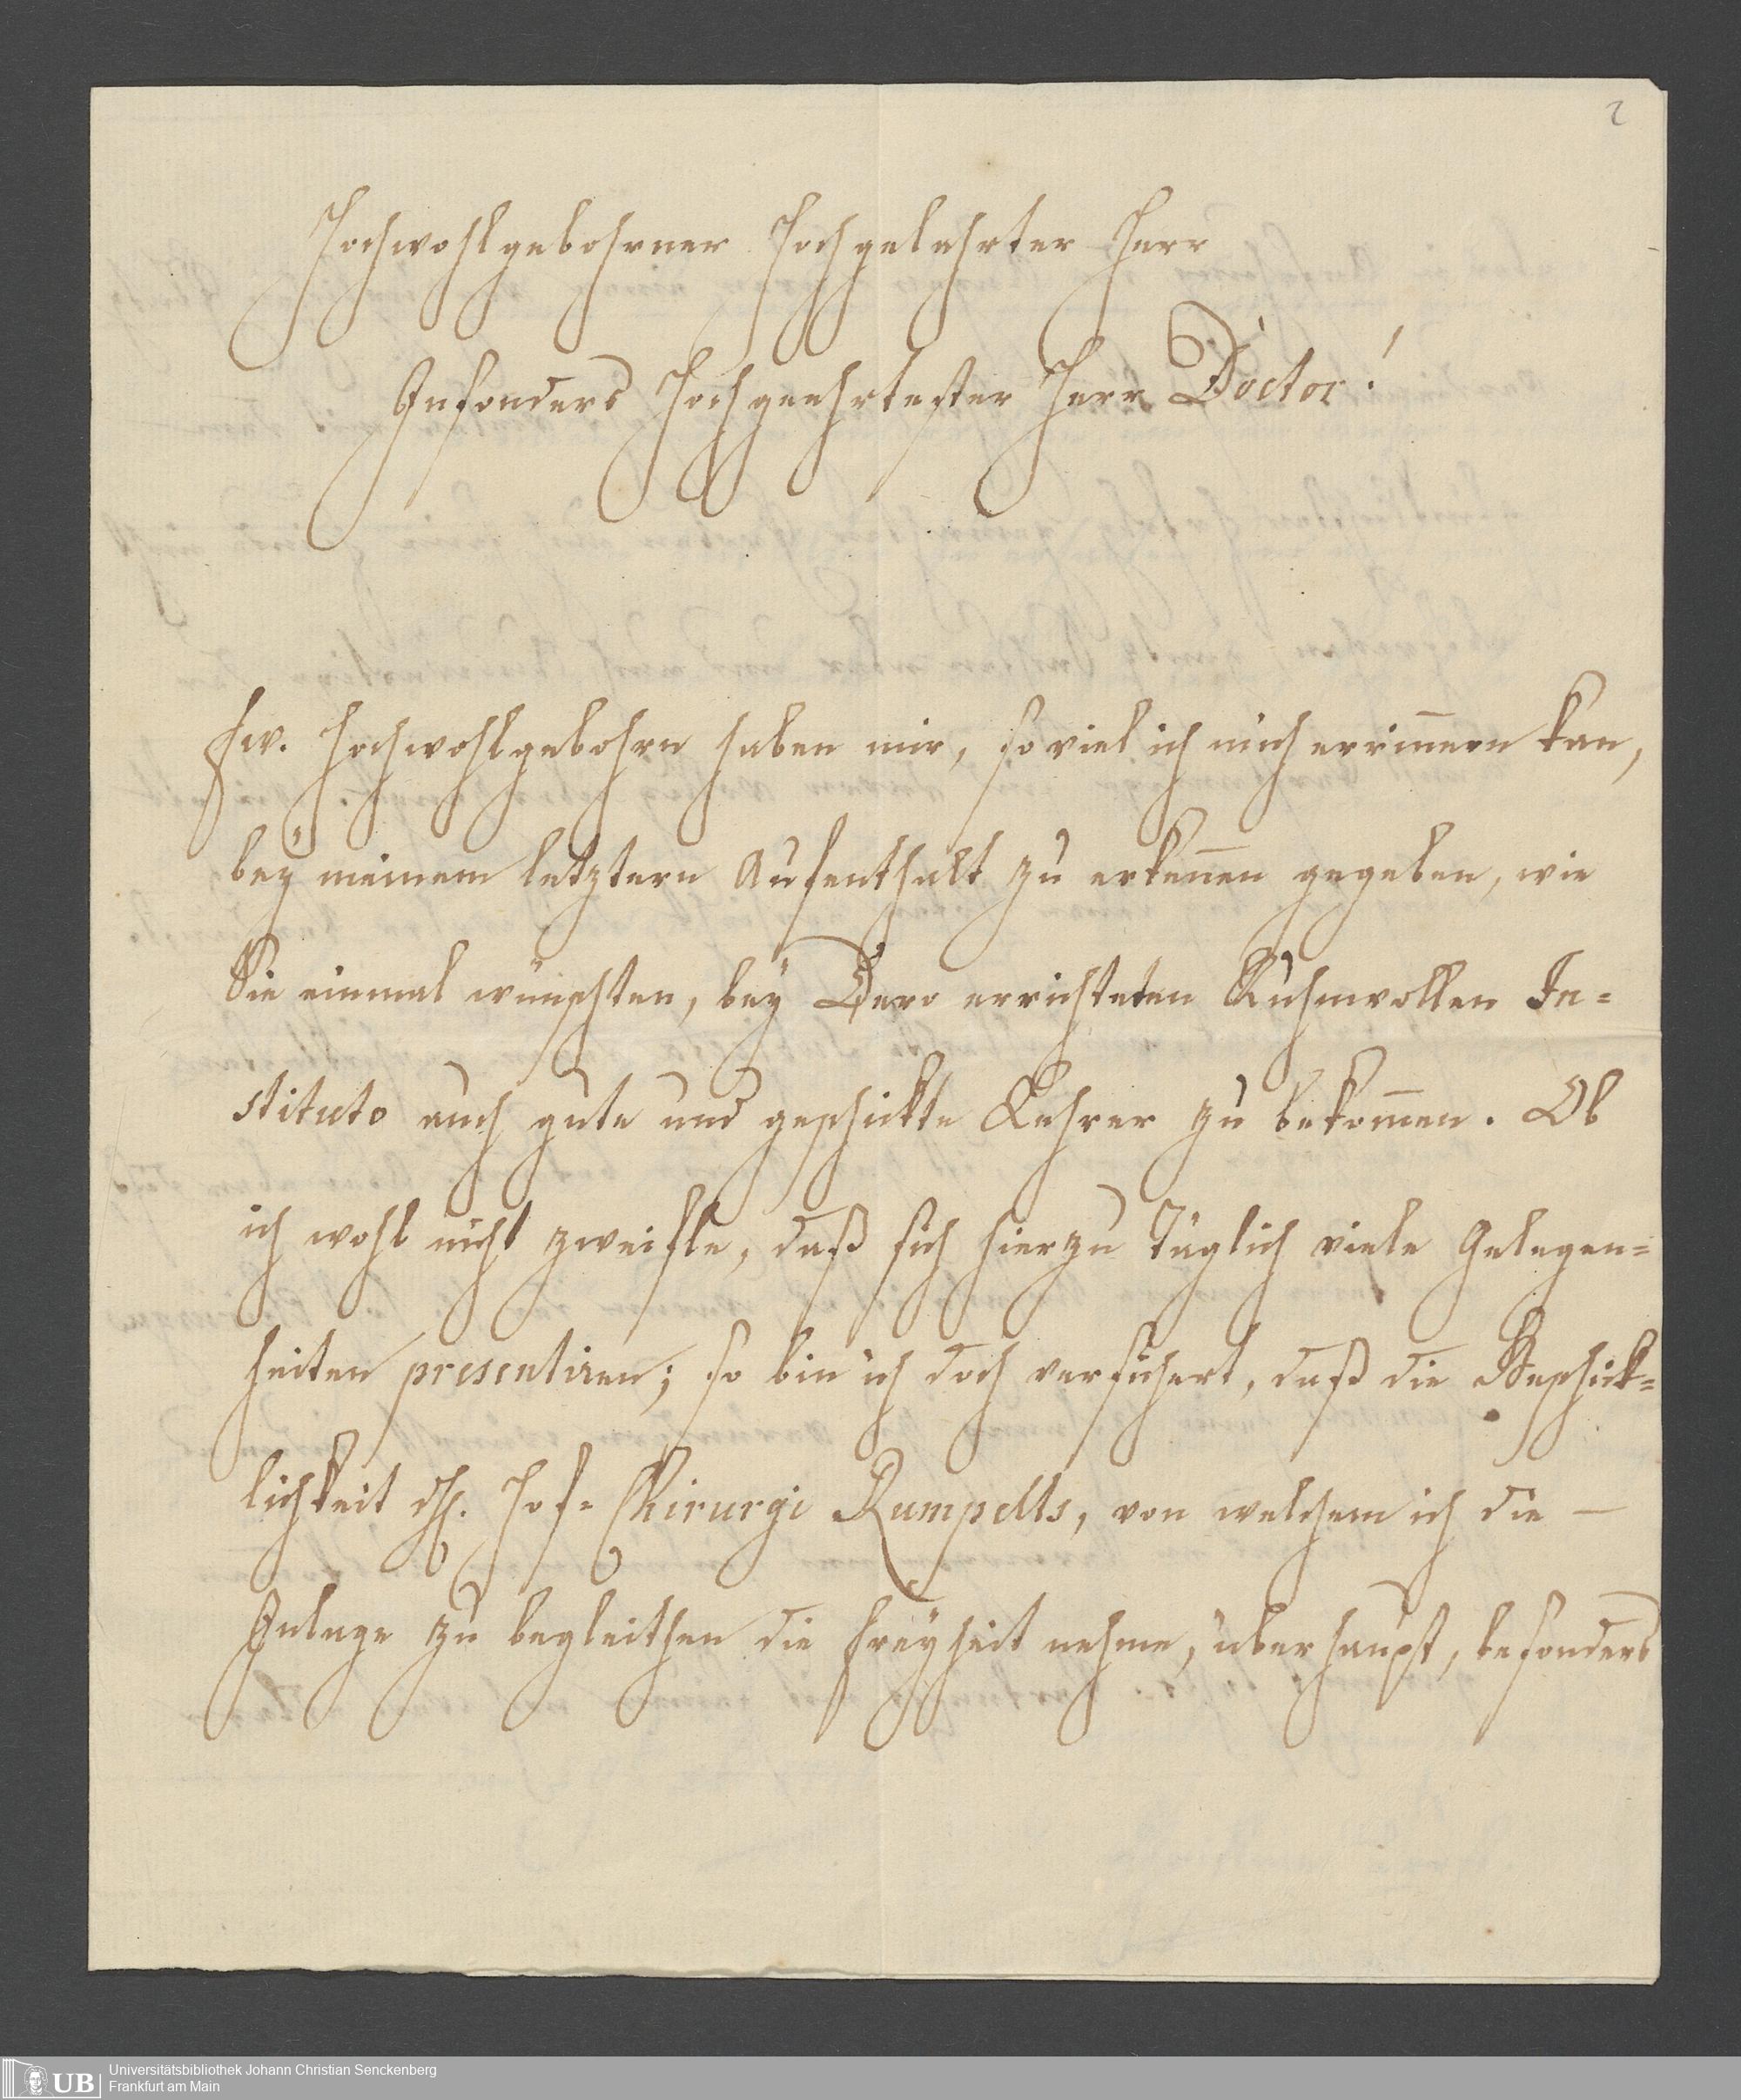 2
Hochwohlgebohrner Hochgelahrter Herr
Insonders Hochgeehrtester Herr Doctor!
Ew. Hochwohlgebohrn haben mir, so viel ich mich errin̄ern kan,
bey meinem letztern Aufenthalt zu erken̄en gegeben, wie
Sie einmal wünschten, bey Dero errichteten Ruhmvollen In=
stituto auch gute und geschickte Lehrer zu bekom̄en. Ob
ich wohl nicht zweifle, daß sich hierzu täglich viele Gelegen=
heiten presentiren; so bin ich doch versichert, daß die Geschick=
lichkeit H. Hof=Chirurgi Rumpelts, von welchem ich die —
Anlage zu begleithen die Freyheit nehme, überhaupt, besonders
UB
Universitätsbibliothek Johann Christian Senckenberg
Frankfurt am Main